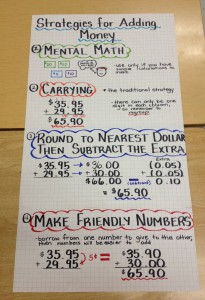 Strategies for Adding
Money
MENTAL MATH
- Use only if you have
CARRYING
→ the traditional strategy
$35.95
+ 29.95
$65.90
- there can only be one
digit in each column,
so remember to
regroup!
ROUND TO NEAREST DOLLAR
THEN SUBTRACT THE EXTRA
$35.95 → $36.00
+ 29.95 → + 30.00
$66.00
Extra
(0.05)
+ (0.05)
(subtract) 0.10
= $65.90
MAKE FRIENDLY NUMBERS
- borrow from one number to give to the other,
then numbers will be easier to add
$35.95
+ 29.95
5¢ =
$35.90
+ 30.00
$65.90